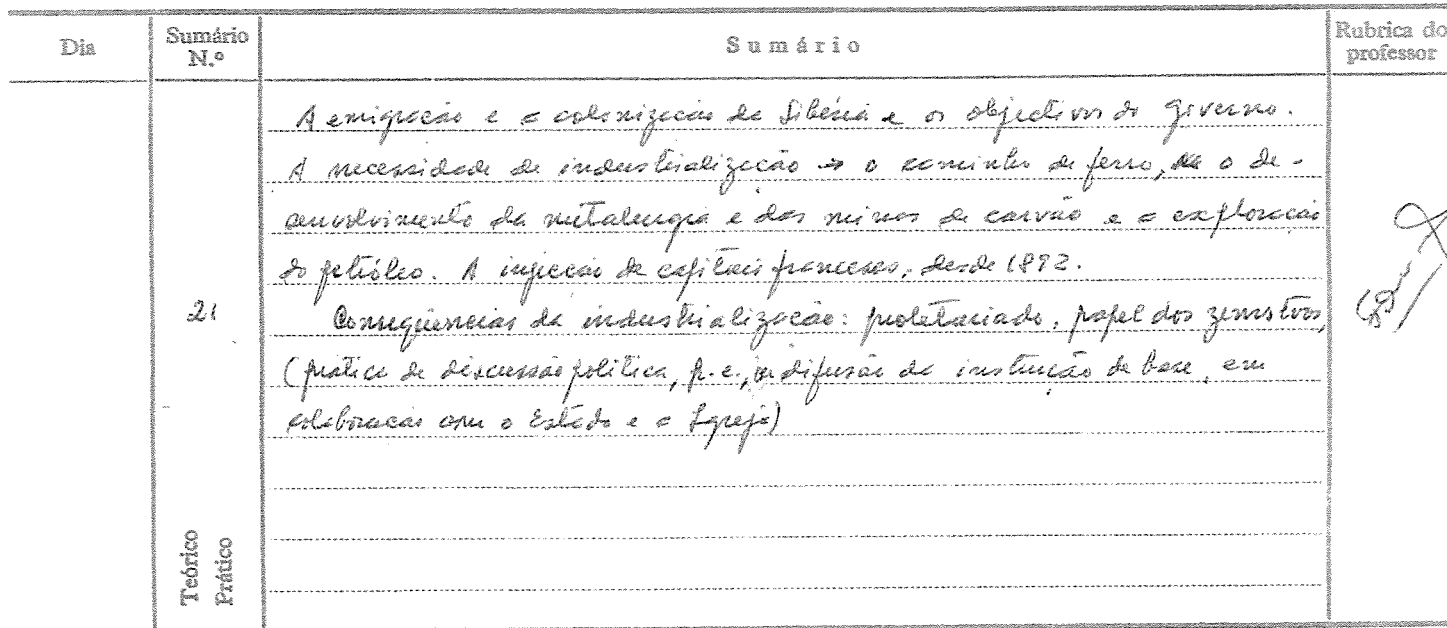 Dia
Sumário N.º
Sumário
Rubrica do professor
A emigração e a colonização da Sibéria e os objectivos do governo.
A necessidade de industrialização → o caminho de ferro, o de-
senvolvimento da metalurgia e das minas de carvão e a exploração
do petróleo. A injecção de capitais franceses, desde 1892.
21
Consequências da industrialização: proletariado, papel dos zemstvos,
(prática de discussão política, p.e., difusão da instrução de base, em
colaboração com o Estado e a Igreja)
Teórico
Prático